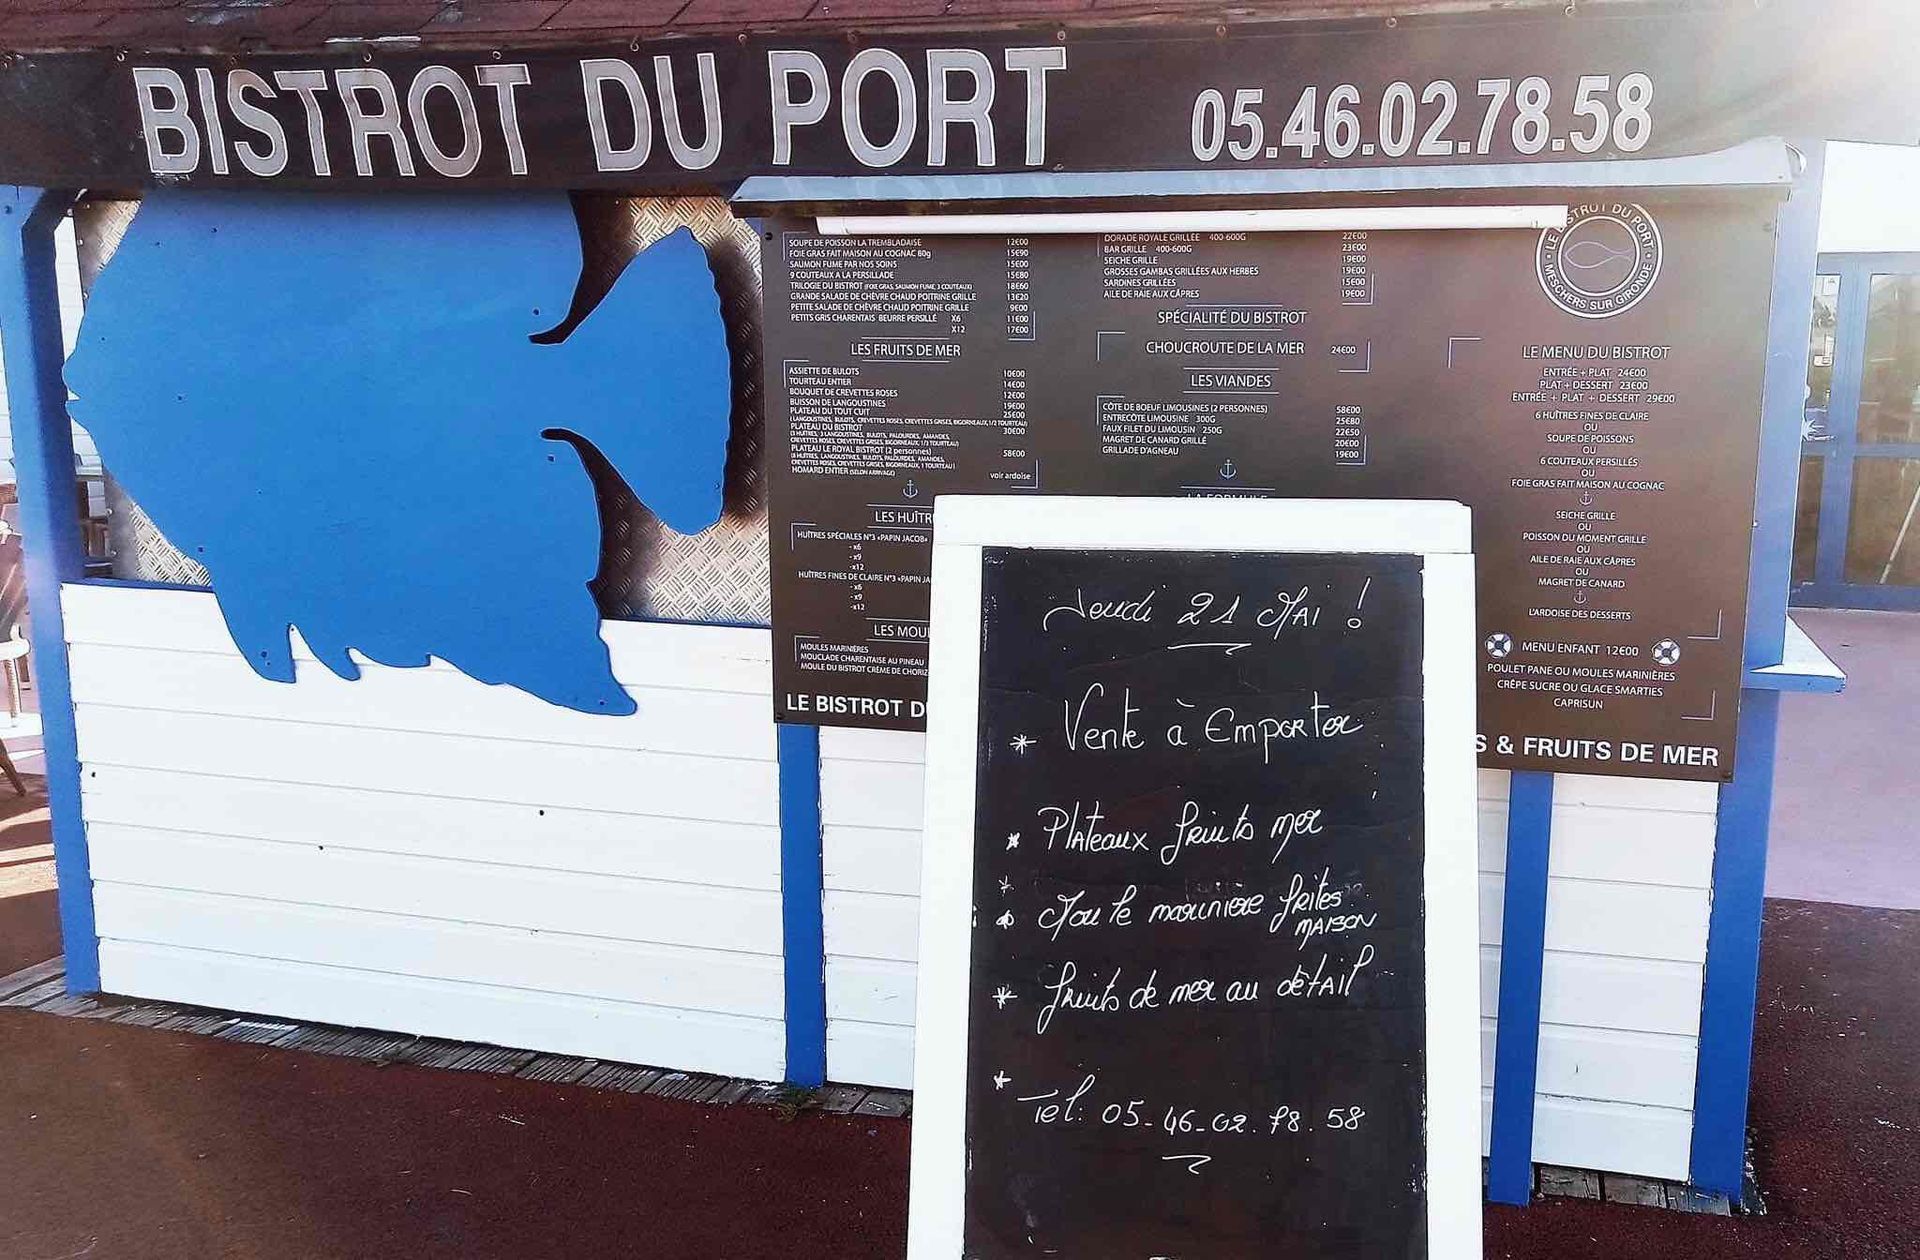 BISTROT DU PORT 05.46.02.78.58
SOUPE DE POISSON LA TREMBLADAISE 12€00
FOIE GRAS FAIT MAISON AU COGNAC 80g 15€90
SAUMON FUME PAR NOS SOINS 15€00
9 COUTEAUX A LA PERSILLADE 15€80
TRILOGIE DU BISTROT (FOIE GRAS, SAUMON FUME, 3 COUTEAUX) 18€60
GRANDE SALADE DE CHÈVRE CHAUD POITRINE GRILLE 13€20
PETITE SALADE DE CHÈVRE CHAUD POITRINE GRILLE 9€00
PETITS GRIS CHARENTAIS BEURRE PERSILLÉ X6 11€00
X12 17€00
LES FRUITS DE MER
ASSIETTE DE BULOTS 10€00
TOURTEAU ENTIER 14€00
BOUQUET DE CREVETTES ROSES 12€00
BUISSON DE LANGOUSTINES 19€00
PLATEAU DU TOUT CUIT 25€00
(LANGOUSTINES, BULOTS, CREVETTES ROSES, CREVETTES GRISES, BIGORNEAUX, 1/2 TOURTEAU)
PLATEAU DU BISTROT 30€00
(3 HUÎTRES, 3 LANGOUSTINES, BULOTS, PALOURDES, AMANDES,
CREVETTES ROSES, CREVETTES GRISES, BIGORNEAUX, 1/2 TOURTEAU)
PLATEAU LE ROYAL BISTROT (2 personnes) 58€00
HUÎTRES, LANGOUSTINES, BULOTS, PALOURDES, AMANDES,
CREVETTES ROSES, CREVETTES GRISES, BIGORNEAUX, 1 TOURTEAU)
HOMARD ENTIER (SELON ARRIVAGE) voir ardoise
LES HUÎTR
HUÎTRES SPÉCIALES N°3 «PAPIN JACOB»
- x6
- x9
- x12
HUÎTRES FINES DE CLAIRE N°3 «PAPIN JA
- x6
- x9
- x12
LES MOU
MOULES MARINIÈRES
MOUCLADE CHARENTAISE AU PINEAU
MOULE DU BISTROT CRÈME DE CHORIZ
LE BISTROT D
DORADE ROYALE GRILLÉE 400-600G 22€00
BAR GRILLE 400-600G 23€00
SEICHE GRILLE 19€00
GROSSES GAMBAS GRILLÉES AUX HERBES 19€00
SARDINES GRILLÉES 15€00
AILE DE RAIE AUX CÂPRES 19€00
SPÉCIALITÉ DU BISTROT
CHOUCROUTE DE LA MER 24€00
LES VIANDES
CÔTE DE BOEUF LIMOUSINES (2 PERSONNES) 58€00
ENTRECÔTE LIMOUSINE 300G 25€80
FAUX FILET DU LIMOUSIN 250G 22€50
MAGRET DE CANARD GRILLÉ 20€00
GRILLADE D'AGNEAU 19€00
LA FORMULE
LE BISTROT DU PORT
MESCHERS SUR GIRONDE
LE MENU DU BISTROT
ENTRÉE + PLAT 24€00
PLAT + DESSERT 23€00
ENTRÉE + PLAT + DESSERT 29€00
6 HUÎTRES FINES DE CLAIRE
OU
SOUPE DE POISSONS
OU
6 COUTEAUX PERSILLÉS
OU
FOIE GRAS FAIT MAISON AU COGNAC
SEICHE GRILLE
OU
POISSON DU MOMENT GRILLE
OU
AILE DE RAIE AUX CÂPRES
OU
MAGRET DE CANARD
L'ARDOISE DES DESSERTS
MENU ENFANT 12€00
POULET PANE OU MOULES MARINIÈRES
CRÊPE SUCRE OU GLACE SMARTIES
CAPRISUN
S & FRUITS DE MER
Jeudi 21 Mai !
* Vente à Emporter
* Plateaux fruits mer
* Moule marinière frites
MAISON
* fruits de mer au détail
* Tel: 05-46-02.78.58